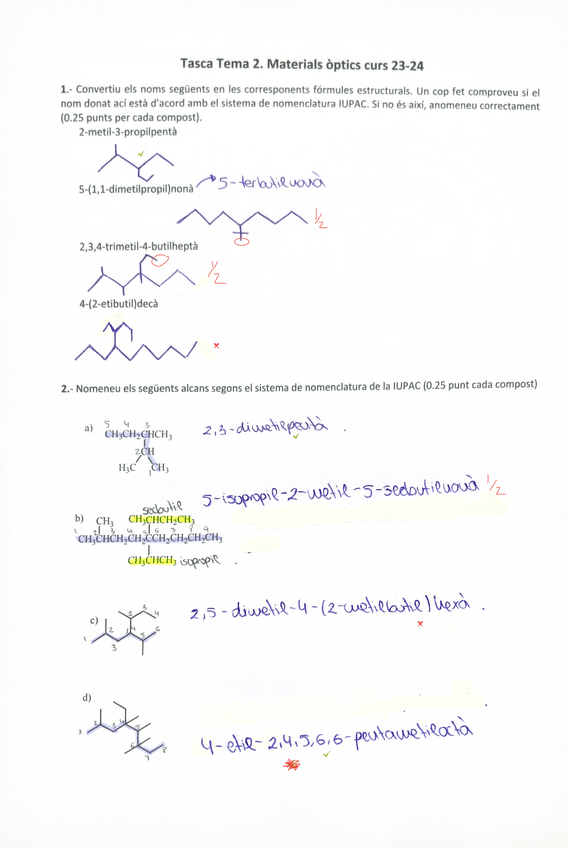 Tasca Tema 2. Materials òptics curs 23-24
1.- Convertiu els noms següents en les corresponents fórmules estructurals. Un cop fet comproveu si el
nom donat ací està d'acord amb el sistema de nomenclatura IUPAC. Si no és així, anomeneu correctament
(0.25 punts per cada compost).
2-metil-3-propilpentà
5-(1,1-dimetilpropil)nonà
5-terbutilnonà
1/2
2,3,4-trimetil-4-butilheptà
1/2
4-(2-etibutil)decà
2.- Nomeneu els següents alcans segons el sistema de nomenclatura de la IUPAC (0.25 punt cada compost)
5 4 3
a) CH3CH2CHCH3
2,3-dimetilpentà .
2CH
H3C CH3
1
5-isopropil-2-metil-5-secbutilnonà 1/2
secbutil
b) CH3 CH3CHCH2CH3
1 2 3 4 5 6 7 8 9
CH3CHCH2CH2CCH2CH2CH2CH3
CH3CHCH3 isopropil .
c)
2,5-dimetil-4-(2-metilbutil)hexà .
d)
4-etil-2,4,5,6,6-pentametiloctà